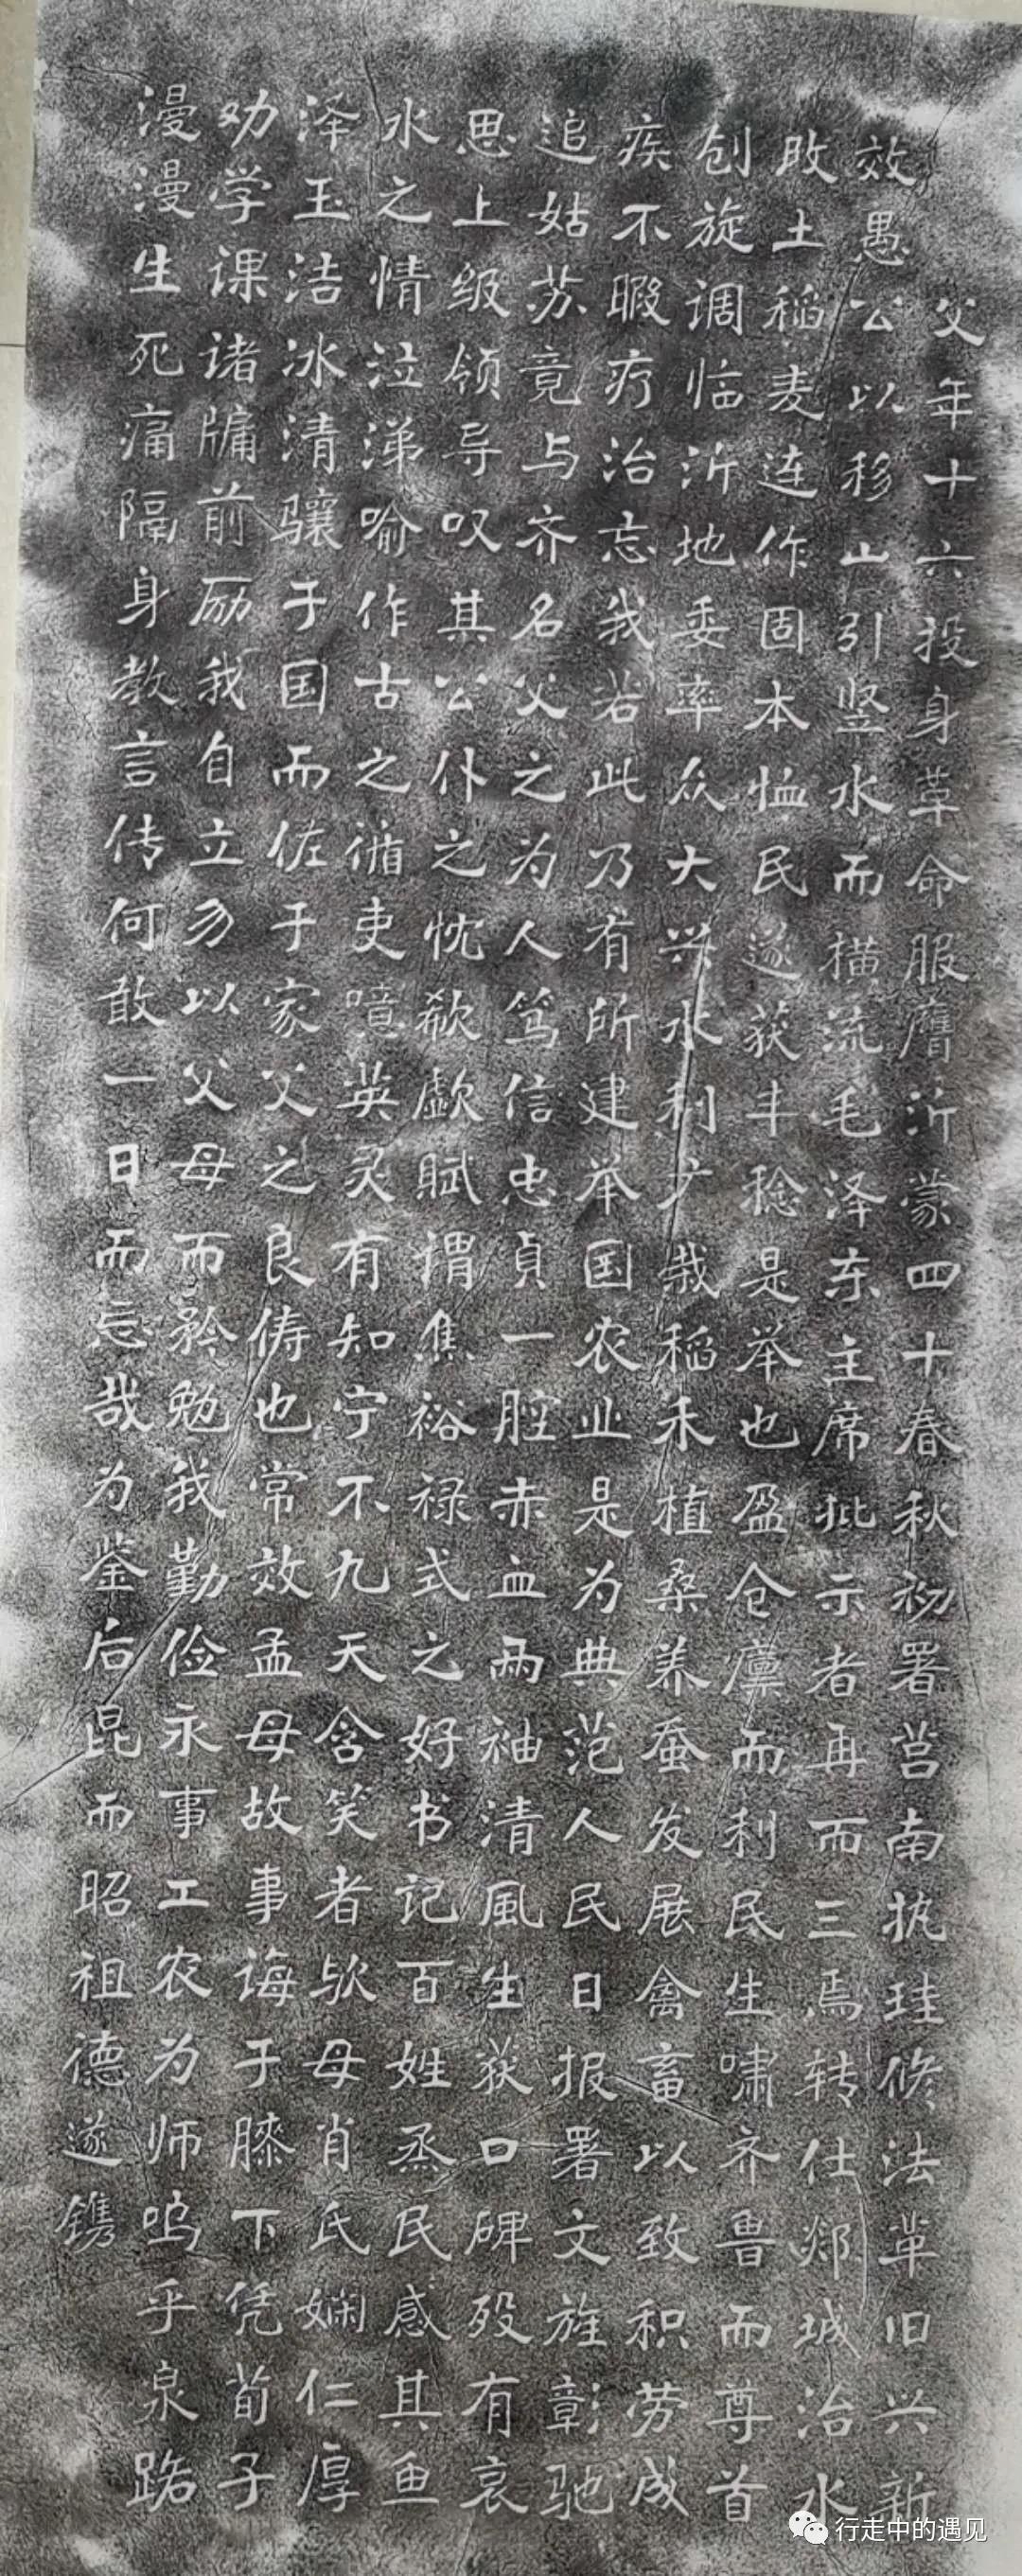 父年十六投身革命服膺沂蒙四十春秋初署莒南执珪修法革旧兴新
效愚公以移山引竖水而横流毛泽东主席批示者再而三焉转仕郯城治水
改土稻麦连作固本恤民遂获丰稔是举也盈仓廪而利民生啸齐鲁而尊首
创旋调临沂地委率众大兴水利广栽稻禾植桑养蚕发展禽畜以致积劳成
疾不暇疗治忘我若此乃有所建举国农业是为典范人民日报署文旌彰驰
追姑苏竟与齐名父之为人笃信忠贞一腔赤血两袖清風生获口碑殁有哀
思上级领导叹其公仆之忱欷歔赋谓焦裕禄式之好书记百姓烝民感其鱼
水之情泣涕喻作古之循吏噫英灵有知宁不九天含笑者欤母肖氏娴仁厚
泽玉洁冰清骧于国而佐于家父之良俦也常效孟母故事诲于膝下凭荀子
劝学课诸牖前励我自立勿以父母而矜勉我勤俭永事工农为师呜乎泉路
漫漫生死痛隔身教言传何敢一日而忘哉为鉴后昆而昭祖德遂镌
行走中的遇见